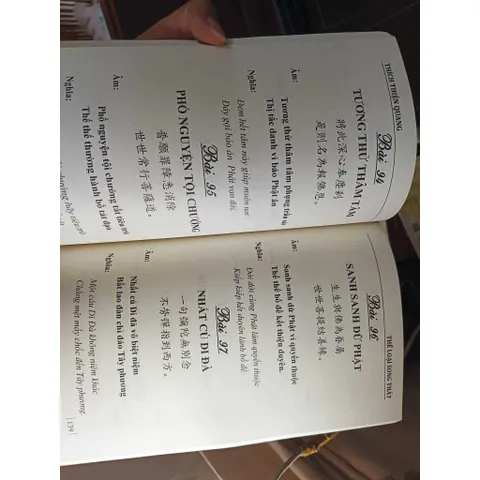 THÍCH THIỆN QUANG
Bài 94
TƯƠNG THỬ THÂM TÂM
將此深心奉塵剎
是則名為報佛恩。
Âm:
Tương thử thâm tâm phụng trần sát
Thị tắc danh vi báo Phật ân
Nghĩa:
Đem hết tâm này giúp muôn nơi
Đây gọi báo ân Phật vạn đời.
Bài 95
PHỔ NGUYỆN TỘI CHƯỚNG
普願罪障悉消除
世世常行菩薩道。
Âm:
Phổ nguyện tội chướng tất tiêu trừ
Thế thế thường hành bồ tát đạo
Nghĩa:
THỂ LOẠI SONG THẤT
Bài 96
SANH SANH DỮ PHẬT
生生與佛為眷屬
世世菩提結善緣。
Âm:
Sanh sanh dữ Phật vi quyến thuộc
Thế thế bồ đề kết thiện duyên.
Nghĩa:
Đời đời cùng Phật làm quyến thuộc
Kiếp kiếp kết duyên lành bồ đề.
Bài 97
NHẤT CÚ DI ĐÀ
一句彌陀無別念
不勞彈指到西方。
Âm:
Nhất cú Di đà vô biệt niệm
Bất lao đàn chỉ đáo Tây phương
Nghĩa:
Một câu Di Đà không niệm khác
Chẳng mệt mảy chốc đến Tây phương
139